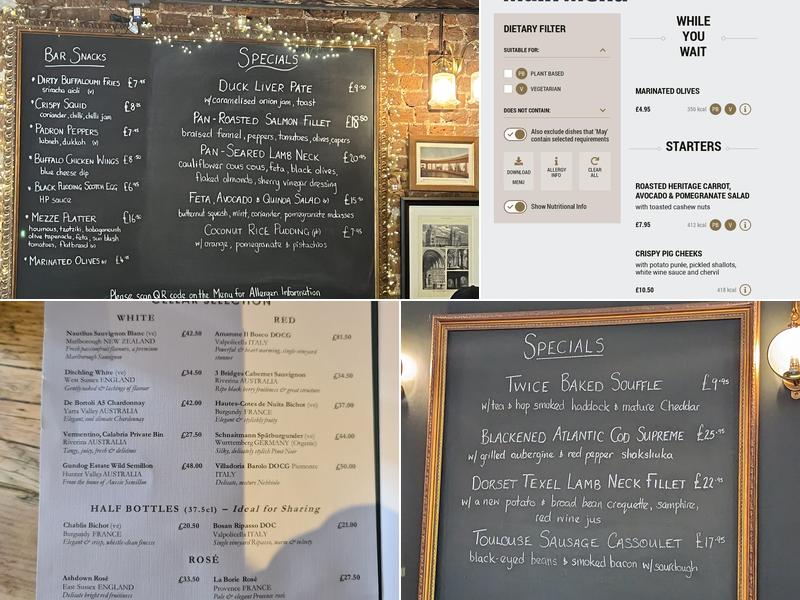 BAR SNACKS
• DIRTY BUFFALOUMI FRIES £7.95
sriracha aioli (v)
• CRISPY SQUID
coriander, chilli, chilli jam
• PADRON PEPPERS £7.95
labneh, dukkah (v)
• BUFFALO CHICKEN WINGS £8.50
blue cheese dip
• BLACK PUDDING SCOTCH EGG £6.95
HP SAUCE
• MEZZE PLATTER £16.50
houmous, tzatziki, babaganoush
olive tapenade, feta, sun blush
tomatoes, flatbread (v)
• MARINATED OLIVES
SPECIALS
DUCK LIVER PATE £9.50
w/caramelised onion jam, toast
PAN-ROASTED SALMON FILLET £18.50
braised fennel, peppers, tomatoes, olives, capers
PAN-SEARED LAMB NECK £20.95
cauliflower cous cous, feta, black olives,
flaked almonds, sherry vinegar dressing
FETA, AVOCADO & QUINOA SALAD £15.50
butternut squash, mint, coriander, pomegranate molasses
COCONUT RICE PUDDING £7.95
w/orange, pomegranate & pistachios
Please scan QR code on the Menu for Allergen Information
DIETARY FILTER
SUITABLE FOR:
PB PLANT BASED
V VEGETARIAN
DOES NOT CONTAIN:
Also exclude dishes that 'May'
contain selected requirements
DOWNLOAD
MENU
ALLERGY
INFO
CLEAR
ALL
Show Nutritional Info
WHILE
YOU
WAIT
MARINATED OLIVES
£4.95 350 kcal PB V i
STARTERS
ROASTED HERITAGE CARROT,
AVOCADO & POMEGRANATE SALAD
with roasted cashew nuts
£7.95 412 kcal PB V i
CRISPY PIG CHEEKS
with potato purée, pickled shallots,
white wine sauce and chervil
£10.50 418 kcal i
CELLAR SELECTION
WHITE
Nautilus Sauvignon Blanc (ve) £42.50
Marlborough NEW ZEALAND
Fresh passionfruit flavours, a premium
Marlborough Sauvignon
Ditchling White (ve) £34.50
West Sussex ENGLAND
Gently oaked & lashings of flavour
De Bortoli A5 Chardonnay £42.00
Yarra Valley AUSTRALIA
Elegant, cool climate Chardonnay
Vermentino, Calabria Private Bin £27.50
Riverina AUSTRALIA
Tangy, juicy, fresh & delicious
Gundog Estate Wild Semillon £48.00
Hunter Valley AUSTRALIA
From the home of Aussie Semillon
RED
Amarone Il Bosco DOCG £81.50
Valpolicella ITALY
Powerful & heart warming, single vineyard
stunner
3 Bridges Cabernet Sauvignon £34.50
Riverina AUSTRALIA
Ripe black berry fruitiness & great structure
Hautes-Cotes de Nuits Bichot (ve) £57.00
Burgundy FRANCE
Elegant & stylishly fruity
Schnaitmann Spätburgunder (ve) £44.00
Württemberg GERMANY (Organic)
Silky, delicately stylish Pinot Noir
Villadoria Barolo DOCG Piemonte £50.00
ITALY
Delicate, mature Nebbiolo
HALF BOTTLES (37.5cl) – Ideal for Sharing
Chablis Bichot (ve) £20.50
Burgundy FRANCE
Elegant & crisp, whistle-clean finesse
Bosan Ripasso DOC £21.00
Valpolicella ITALY
Single vineyard Ripasso, warm & velvety
ROSÉ
Ashdown Rosé £33.50
East Sussex ENGLAND
Delicate bright red fruitiness
La Borie Rosé £27.50
Provence FRANCE
Pale & elegant Provence rosé
SPECIALS
TWICE BAKED SOUFFLE £9.95
w/tea & hop smoked haddock & mature Cheddar
BLACKENED ATLANTIC COD SUPREME £25.95
w/ grilled aubergine & red pepper shakshuka
DORSET TEXEL LAMB NECK FILLET £22.95
w/ a new potato & broad bean croquette, samphire,
red wine jus
TOULOUSE SAUSAGE CASSOULET £17.95
black-eyed beans & smoked bacon w/ sourdough